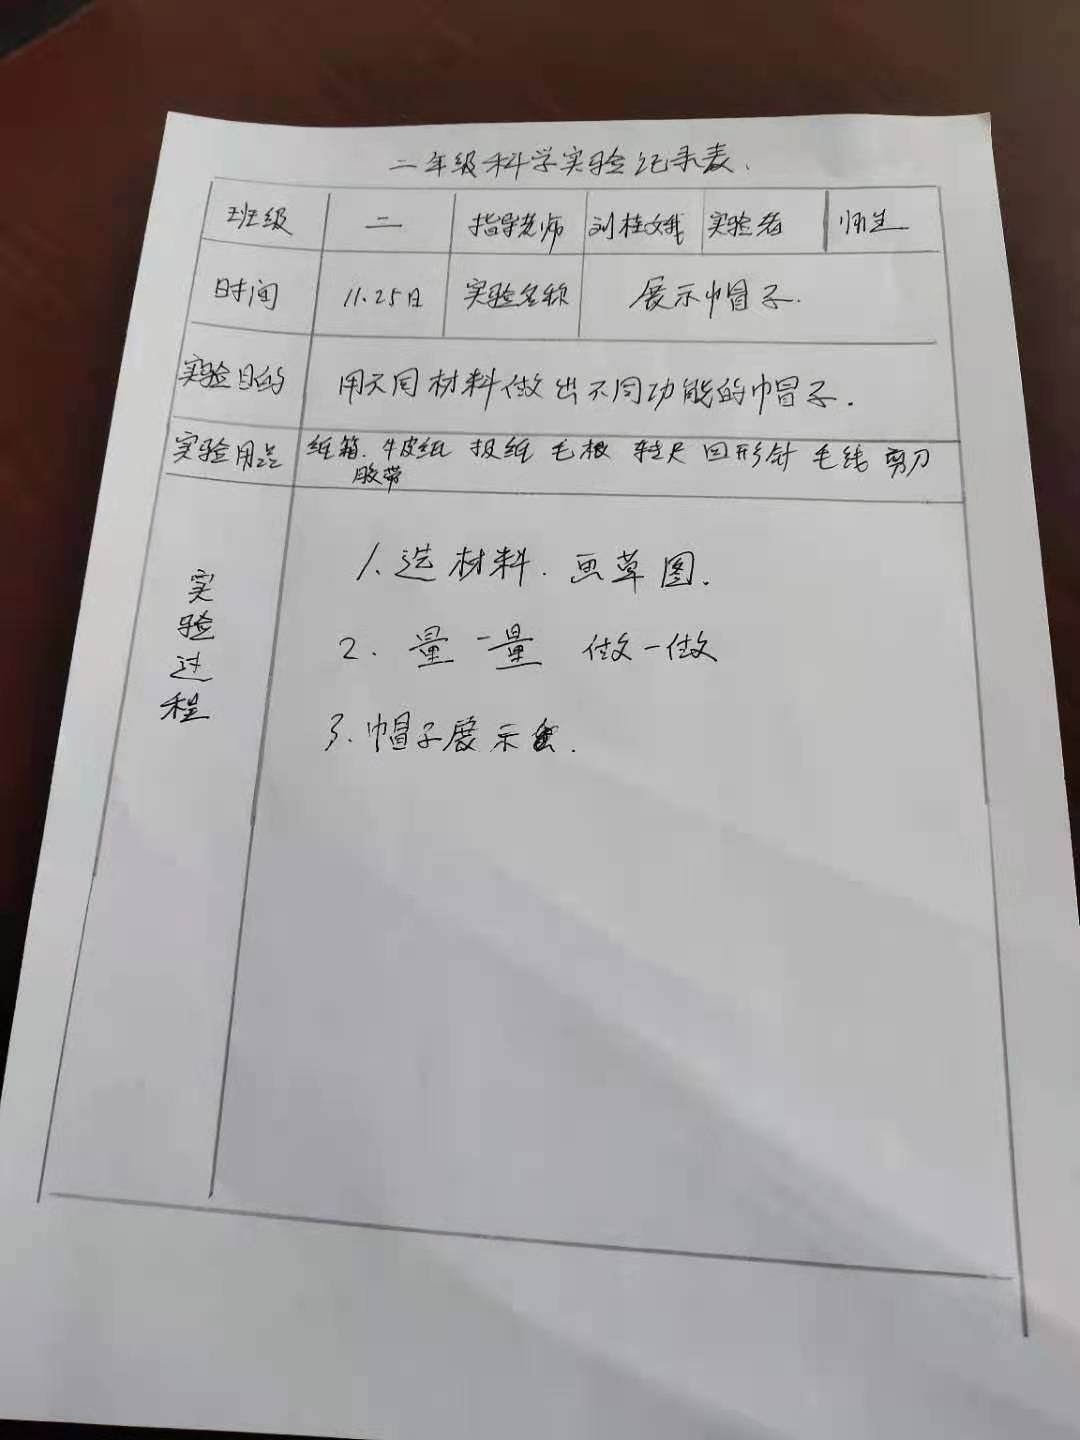 二年级科学实验记录表.
班级 二 指导老师 刘桂娥 实验者 师生
时间 11.25日 实验名称 展示帽子.
实验目的 用不同材料做出不同功能的帽子.
实验用品 纸箱. 牛皮纸 报纸 毛根 软尺 回形针 毛线 剪刀
胶带
实验过程
1、选材料. 画草图.
2. 量一量 做一做
3. 帽子展示会.